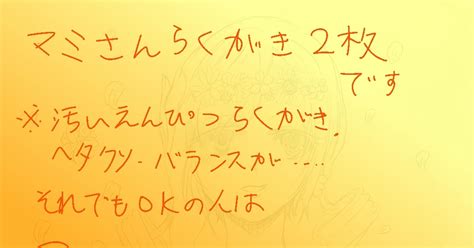 マミさんらくがき2枚
です
※汚いえんぴつらくがき,
ヘタクソ-バランスが....
それでもOKの人は